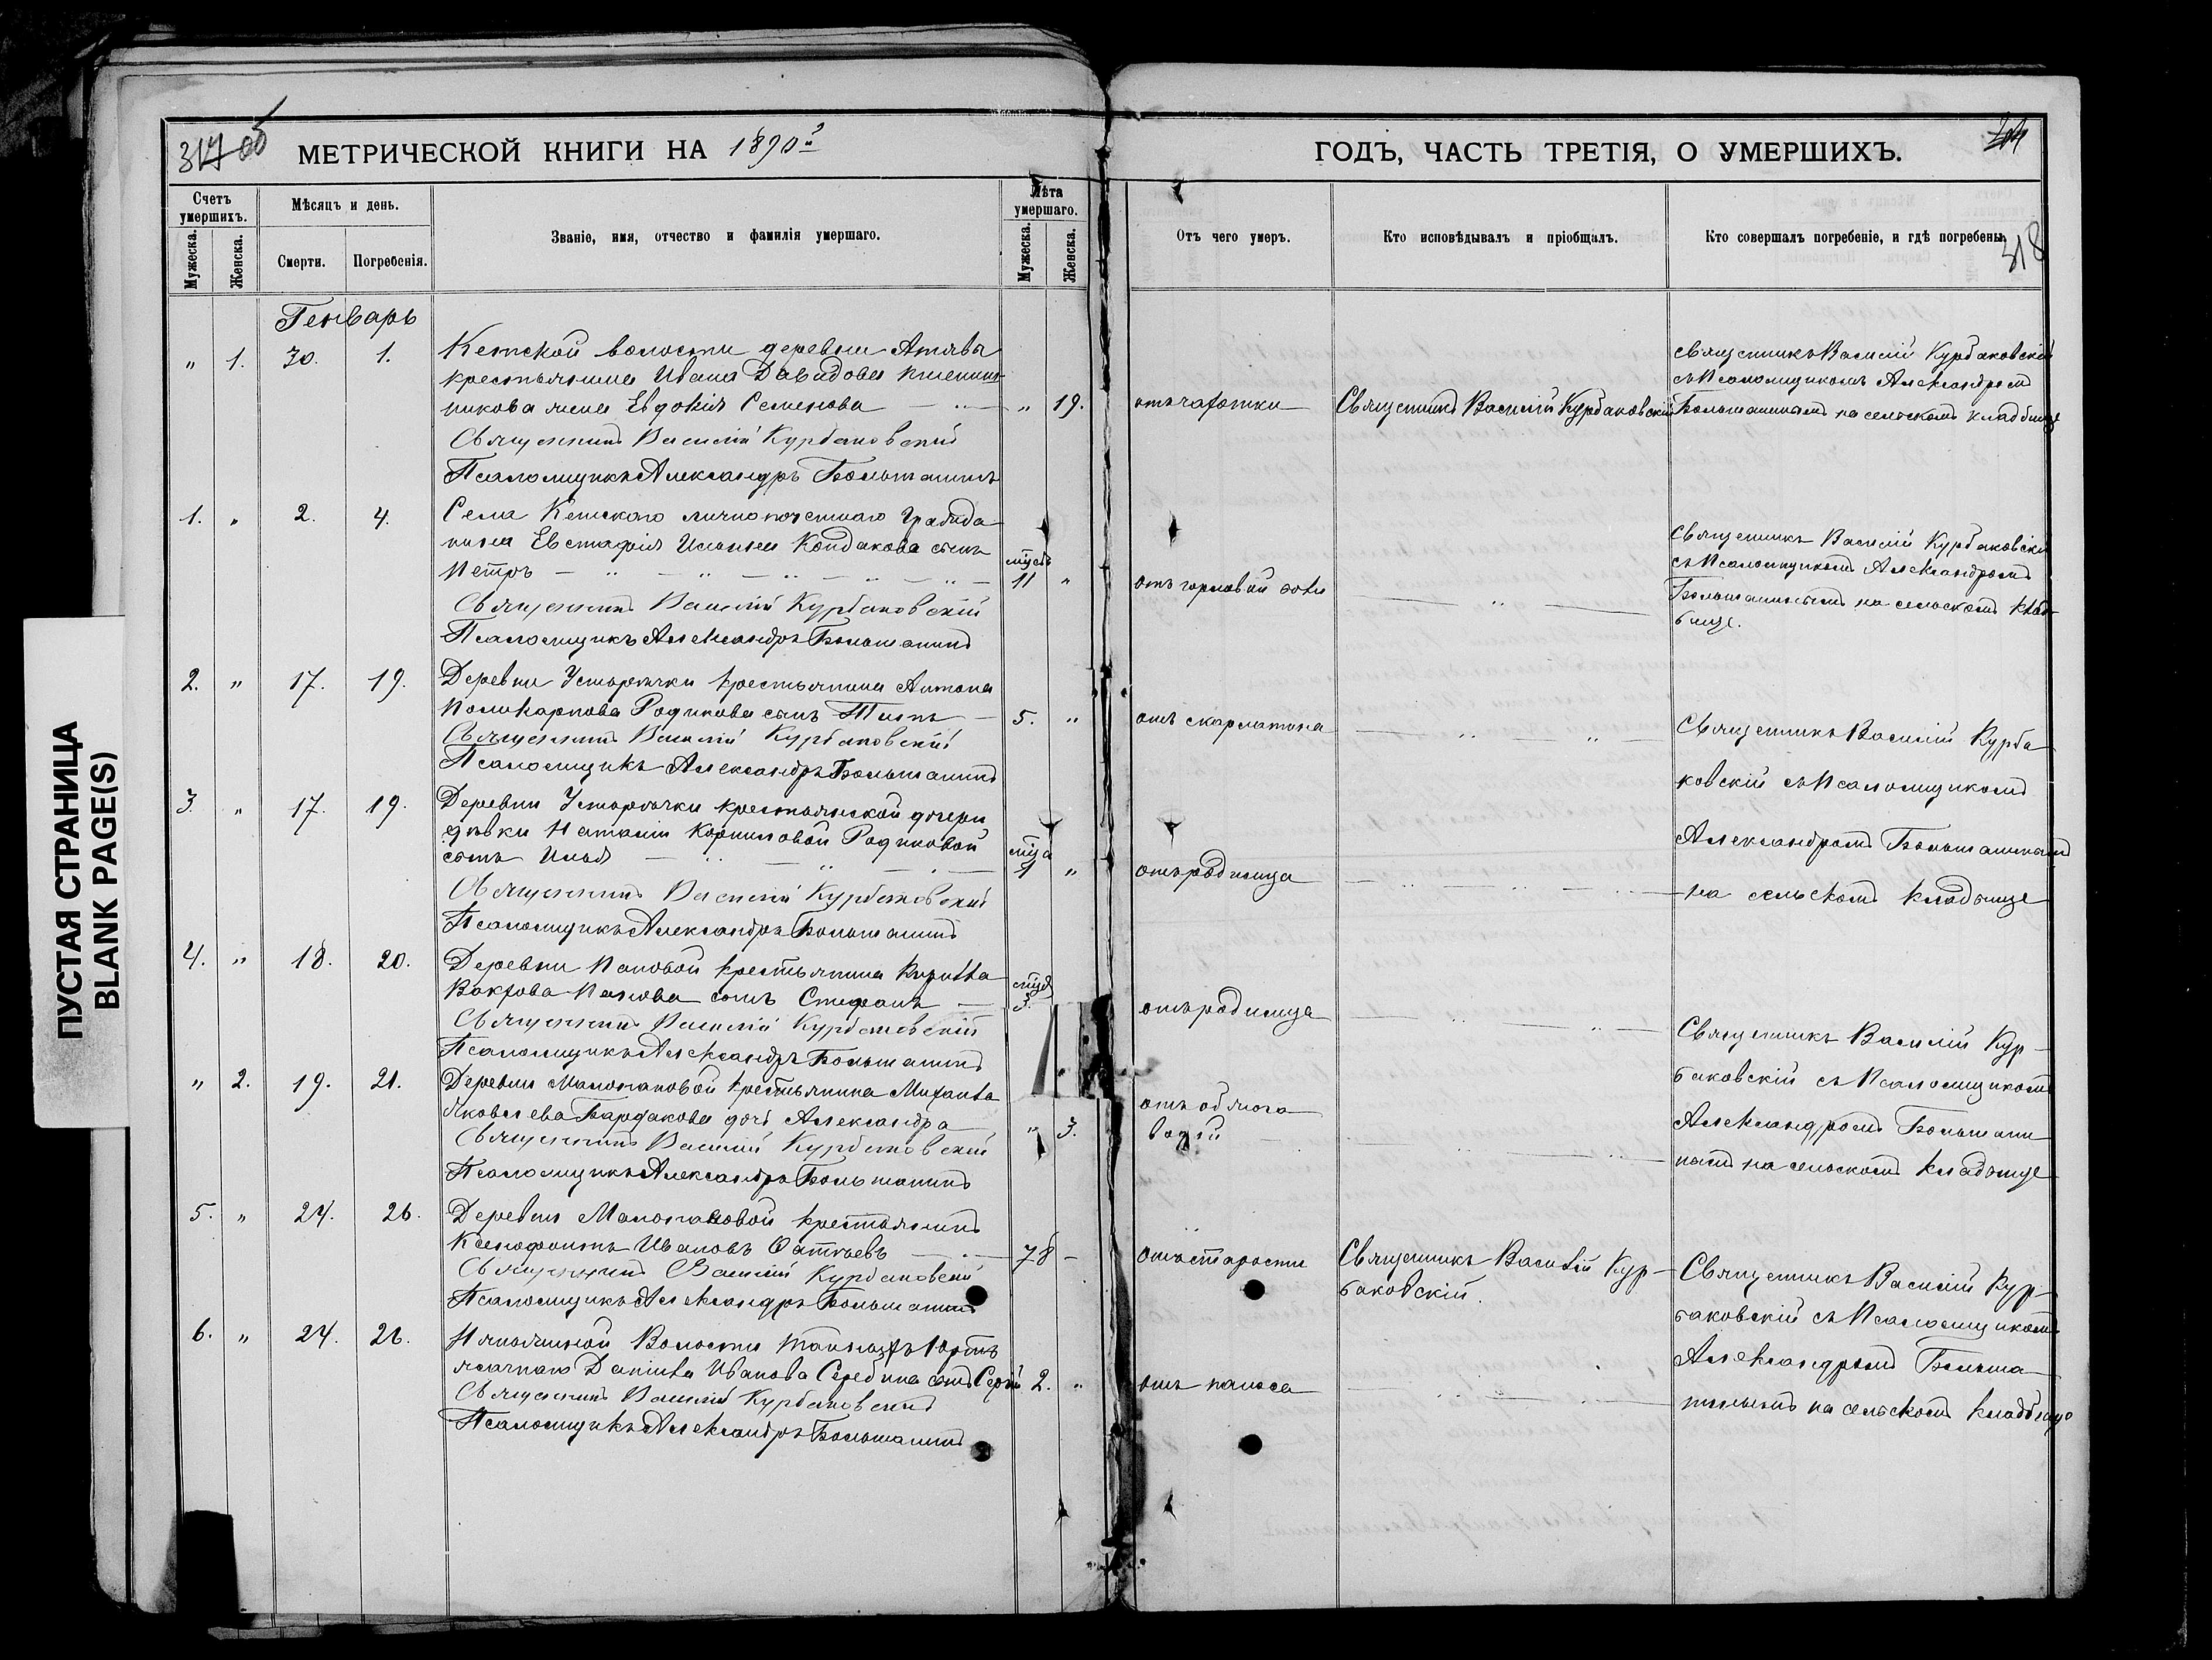 ПУСТАЯ СТРАНИЦА
BLANK PAGE(S)
317 об
МЕТРИЧЕСКОЙ КНИГИ НА 1890 г
Счетъ умершихъ.
Мужеска.
Женска.
Мѣсяцъ и день.
Смерти.
Погребенія.
Званіе, имя, отчество и фамилія умершаго.
Лѣта умершаго.
Мужеска.
Женска.
Генварь
" 1. 30. 1. Кетской волости деревни
крестьянина Ивана Давидова
никова жена Евдокія Семенова " 19.
Священникъ Василій Курбаковскій
Псаломщикъ Александръ Большанинъ
1. " 2. 4. Села Кетскаго лично почетнаго гражда-
нина Евстафія Ильина Кондакова сынъ
мѣсяц.
Петръ 11 "
Священникъ Василій Курбаковскій
Псаломщикъ Александръ Большанинъ
2. " 17. 19. Деревни Усторѣчки крестьянина Антона
Поликарпова Родикова сынъ 5. "
Священникъ Василій Курбаковскій
Псаломщикъ Александръ Большанинъ
3. " 17. 19. Деревни Усторѣчки крестьянской дочери
дѣвки Наталіи Корниловой Родиковой
мѣсяца
сынъ Илья 1 "
Священникъ Василій Курбаковскій
Псаломщикъ Александръ Большанинъ
4. " 18. 20. Деревни Пановой крестьянина Кирилла
Панова сынъ Стефанъ 3.
Священникъ Василій Курбаковскій
Псаломщикъ Александръ Большанинъ
" 2. 19. 21. Деревни Малопановой крестьянина Михаила
Яковлева Бардакова дочь Александра " 3.
Священникъ Василій Курбаковскій
Псаломщикъ Александръ Большанинъ
5. " 24. 26. Деревни Малопановой крестьянинъ
Ксенофонтъ Ивановъ Фатѣевъ 78 -
Священникъ Василій Курбаковскій
Псаломщикъ Александръ Большанинъ
6. " 24. 26. Волости юртъ
ясачнаго Даніила Иванова Середина сынъ Сергій 2. "
Священникъ Василій Курбаковскій
Псаломщикъ Александръ Большанинъ
ГОДЪ, ЧАСТЬ ТРЕТІЯ, О УМЕРШИХЪ.
318
Отъ чего умеръ.
Кто исповѣдывалъ и пріобщалъ.
Кто совершалъ погребеніе, и гдѣ погребены.
Священникъ Василій Курбаковскій
съ Псаломщикомъ Александромъ
отъ чахотки Священникъ Василій Курбаковскій Большанинымъ на сельскомъ кладбищѣ
Священникъ Василій Курбаковскій
съ Псаломщикомъ Александромъ
отъ горловой боли Большанинымъ на сельскомъ клад-
бищѣ.
отъ скарлатина Священникъ Василій Курба
ковскій съ Псаломщикомъ
Александромъ Большанинымъ
отъ родимца на сельскомъ кладбищѣ
отъ родимца
Священникъ Василій Кур-
баковскій съ Псаломщикомъ
отъ обжога Александромъ Большани
водой нымъ на сельскомъ кладбищѣ
отъ старости Священникъ Василій Кур-
баковскій.
Священникъ Василій Кур-
баковскій съ Псаломщикомъ
Александромъ Больша
отъ поноса нинымъ на сельскомъ кладбищѣ